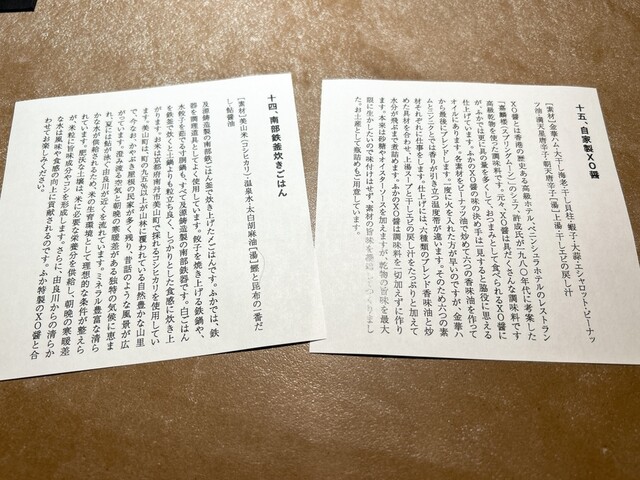 十五、自家製XO醬
[素材]金華ハム・大干し海老・干し貝柱・蝦子・大蒜・エシャロット・ピーナッツ油・満天星唐辛子・朝天唐辛子[湯]上湯・干しエビの戻し汁
XO醬とは香港の歴史ある高級ホテル、ペニンシュラホテルのレストラン
「嘉麟楼(スプリングムーン)」のシェフ、許成氏が一九八〇年代に考案した
高級乾物を使った調味料です。元々、XO醬は具だくさんな調味料です
が、ふかでは更に具の量を多くして、おつまみとして食べられるXO醬に
仕上げています。ふかのXO醬の味の決め手は一見すると脇役に思える
オイルにあります。各素材をピーナッツ油で炒めて六つの香味油を作って
から最後にブレンドします。一度に火を入れた方が早いのですが、金華ハ
ムとニンニクでは香りが引き立つ温度帯が違います。そのため六つの素
材それぞれに仕事をします。仕上げには、六種類のブレンド香味油と炒
めた具材を合わせ、上湯スープと干しエビの戻し汁をたっぷりと加えて
水分が飛ぶまで煮詰めます。ふかのXO醬は調味料を一切加えずに作り
ます。本来は砂糖やオイスターソースを加えますが、乾物の旨味を最大
限に生かしたいので味付けはせず、素材の旨味を凝縮してつくりまし
た。お土産として瓶詰めもご用意しています。
十四、南部鉄釜炊きごはん
[素材]美山米(コシヒカリ)・温泉水・太白胡麻油[湯]鰹と昆布の一番だ
し・鮎醬油
及源鋳造製の南部鉄ごはん釜で炊き上げた〆ごはんです。ふかでは、鉄
器を調理道具として多く使用しています。餃子を焼き上げる鉄鍋や、
水餃子を茹でる寸胴鍋も、すべて及源鋳造製の南部鉄器です。白ごはん
を鉄釜で炊くと土鍋よりも粒立ち良く、しっかりとした食感に炊き上
がります。お米は京都府南丹市美山町で採れるコシヒカリを使用してい
ます。美山町は、町の九五%以上が山林に覆われている自然豊かな山里
で、今なお、かやぶき屋根の民家が多く残り、昔話のような風景が広
がっています。澄み渡る空気と朝晩の寒暖差がある独特の気候に恵ま
れ、夏には鮎が泳ぐ由良川が近くを流れています。ミネラル豊富な清ら
かな水が供給されるため、米の生育環境として理想的な条件が整えら
れています。肥沃な土壌は、米に必要な栄養分を供給し、朝晩の寒暖差
が、米粒に旨味成分やコシを形成します。さらに、由良川からの清らか
な水は風味や食感の向上に貢献されるのです。ふか特製のXO醬と合
わせてお楽しみください。